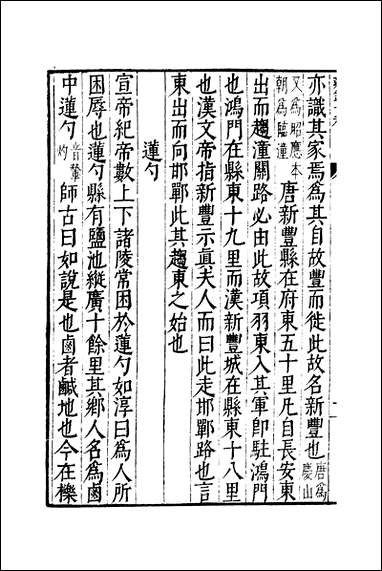 亦識其家焉為其自故豐而徙此故名新豐也唐為慶山
又為昭應本朝為臨潼唐新豐縣在府東五十里凡自長安東
出而趨潼關路必由此故項羽東入其軍即駐鴻門
也鴻門在縣東十九里而漢新豐城在縣東十八里
也漢文帝指新豐示眞夫人而曰此走邯鄲路也言
東出而向邯鄲此其趨東之始也
蓮勺
宣帝紀帝數上下諸陵常困於蓮勺如淳曰為人所
困辱也蓮勺縣有鹽池縱廣十餘里其鄉人名為鹵
中蓮勺音輦灼師古曰如說是也鹵者鹹地也今在櫟